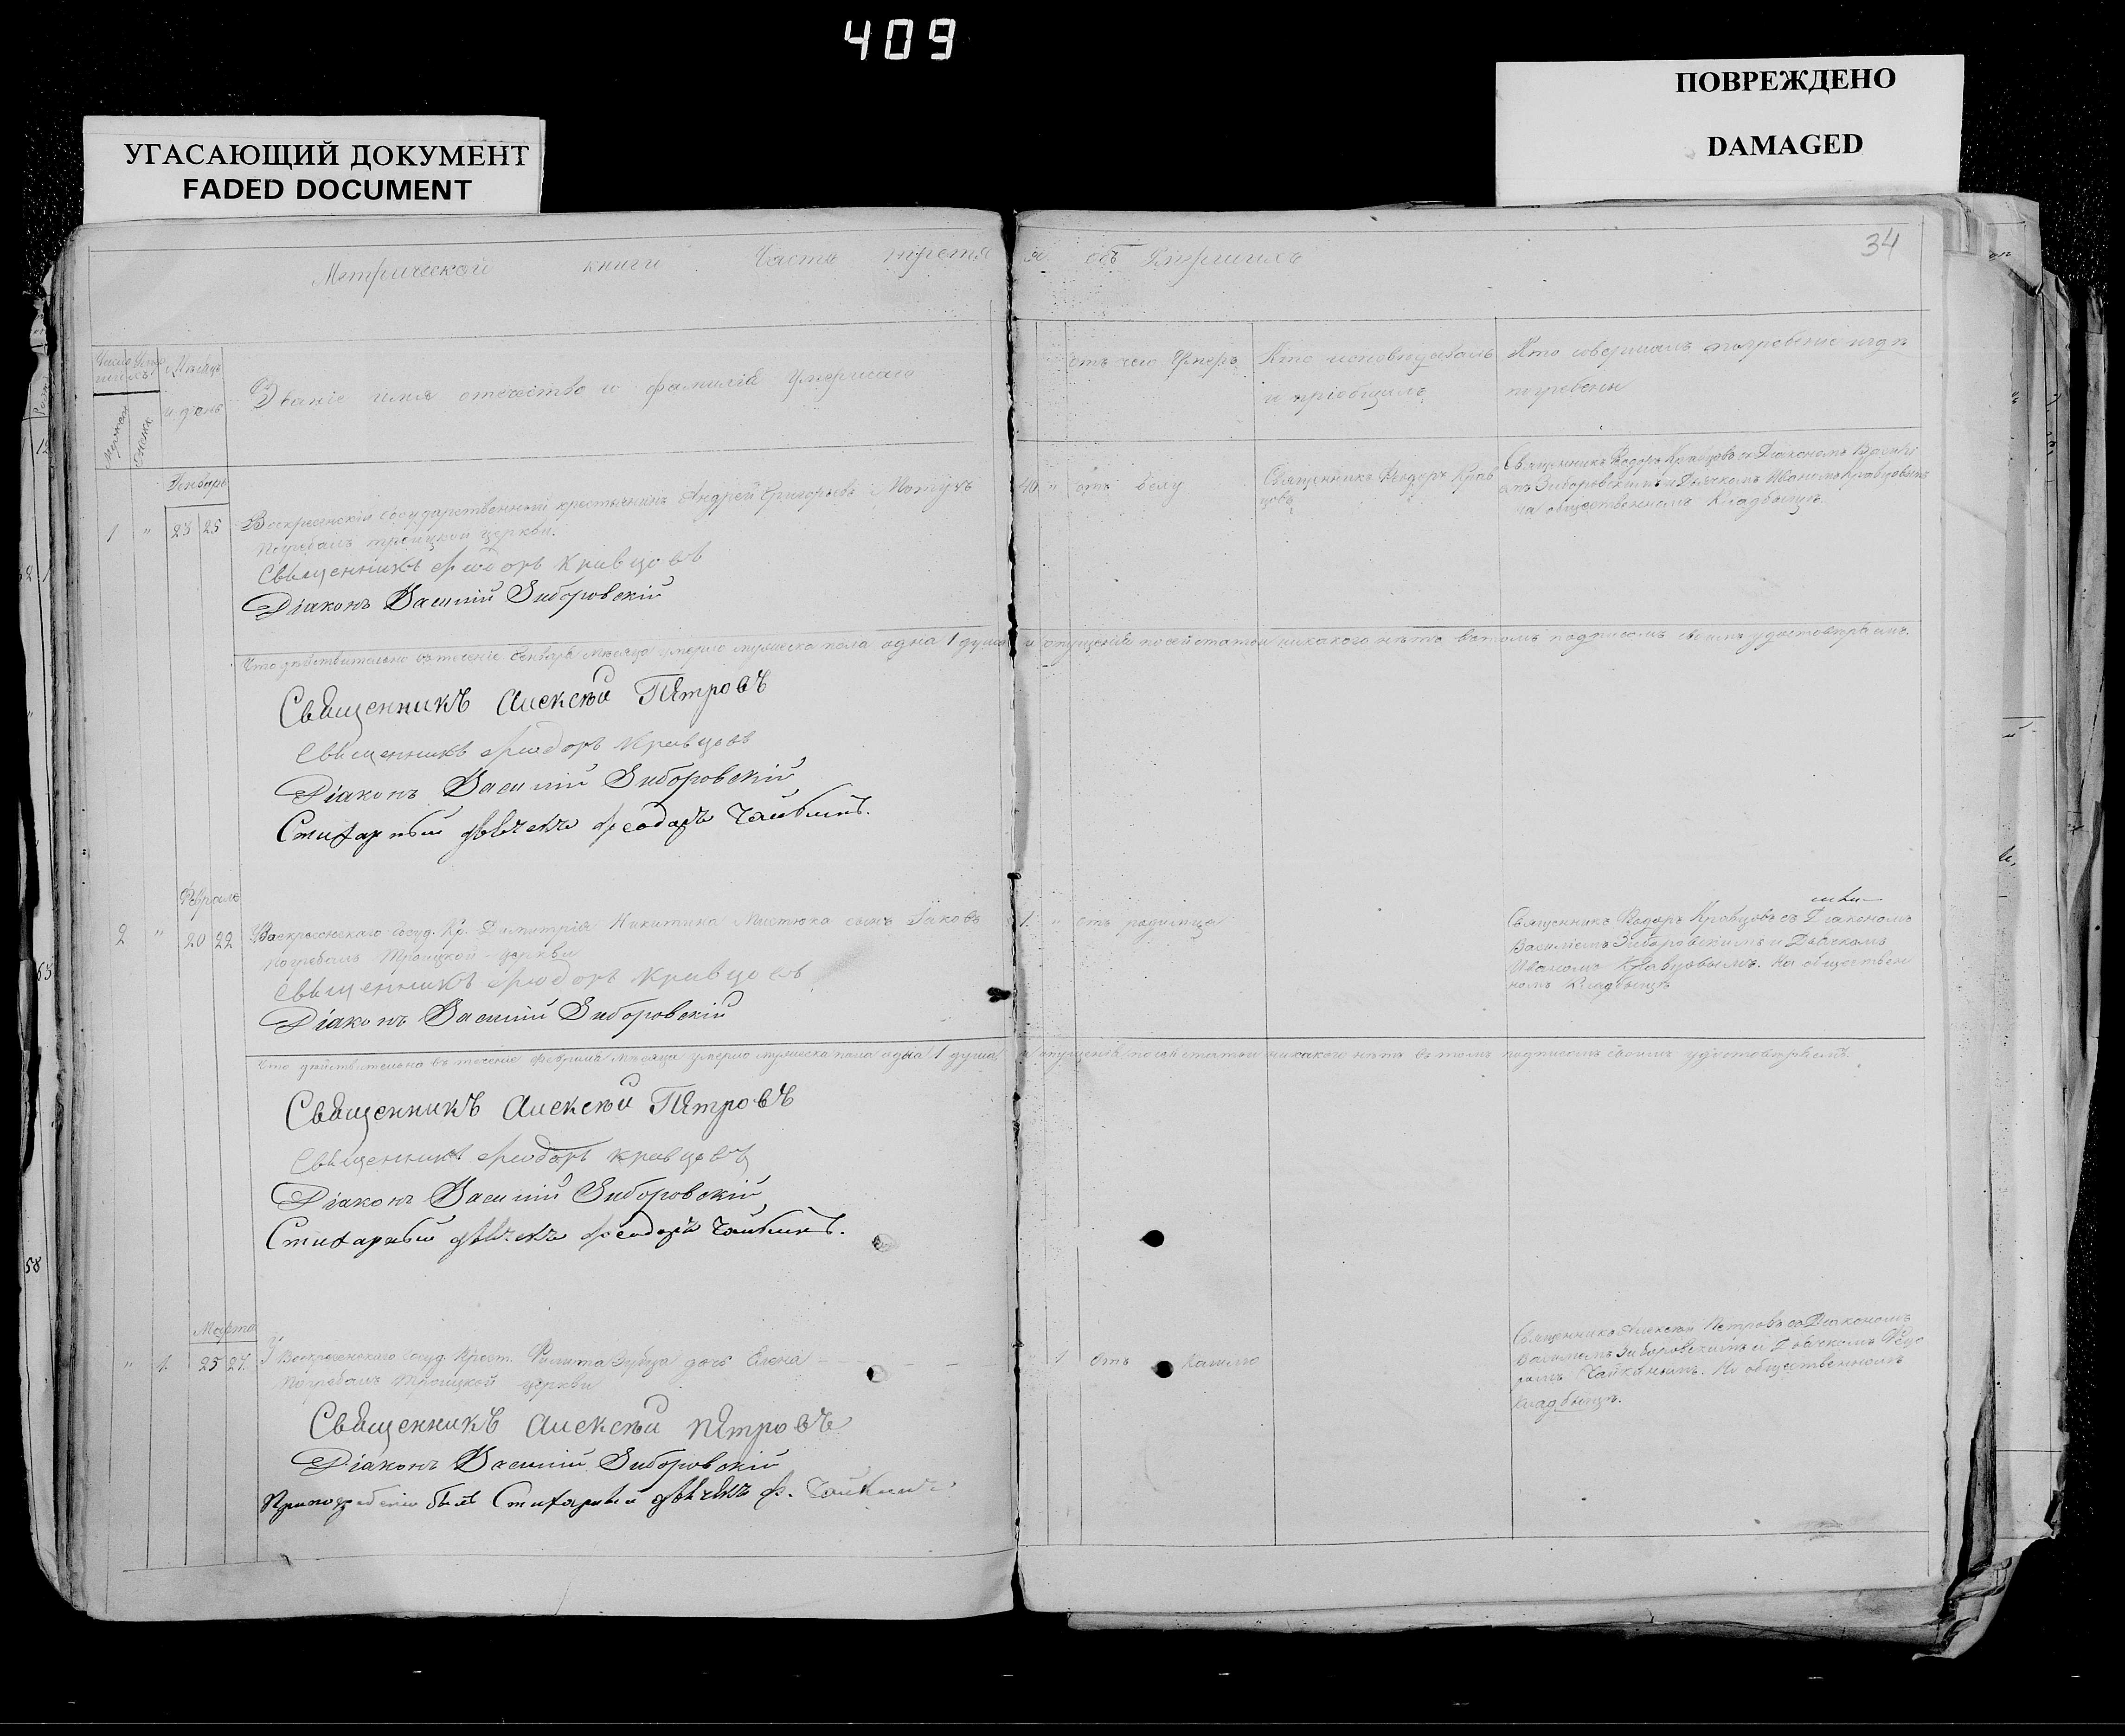 409
УГАСАЮЩИЙ ДОКУМЕНТ
FADED DOCUMENT
ПОВРЕЖДЕНО
DAMAGED
34
Метрической книги Часть третья объ Умершихъ
Месяцъ и день
Званіе имя отечество и фамилія Умершаго
отъ чего Умеръ
Кто исповѣдывалъ и пріобщалъ
Кто совершалъ погребеніе и гдѣ погребены
Генварь
1 " 23 25
Воскресенскій государственный крестьянинъ Андрей Григорьевъ Мотузъ
Погребалъ троицкой церкви.
Священникъ Ѳеодоръ Кравцовъ
Діаконъ Василій Зиборовскій
40 " отъ
Священникъ Феодоръ Кравцовъ
Священникъ Федоръ Кравцовъ съ Діакономъ Василіемъ Зиборовскимъ и Дьячкомъ Иваномъ Кравцовымъ
на общественномъ Кладбищѣ.
Что дѣйствительно въ теченіе Генваря мѣсяца умерло мужеска пола одна 1 душа и опущенія по сей статьи никакого нѣтъ въ томъ подписомъ своимъ удостовѣряемъ.
Священникъ Алексѣй Петровъ
Священникъ Ѳеодоръ Кравцовъ
Діаконъ Василій Зиборовскій
Стихарный дьячекъ Ѳеодоръ Чайкинъ.
Февраль
2 " 20 22
Воскресенскаго Госуд. Кр. Димитрія Никитина сынъ Іаковъ
погребалъ Троицкой церкви
Священникъ Ѳеодоръ Кравцовъ
Діаконъ Василій Зиборовскій
1. " отъ родимца
Священникъ Федоръ Кравцовъ съ Діакономъ
Василіемъ Зиборовскимъ и Дьячкомъ
Иваномъ Кравцовымъ. На обществен
номъ Кладбищѣ
Что дѣйствительно въ теченіе Февраля мѣсяца умерло мужеска пола одна 1 душа и опущенія по сей статьи никакого нѣтъ въ томъ подписомъ своимъ удостовѣряемъ.
Священникъ Алексѣй Петровъ
Священникъ Ѳеодоръ Кравцовъ
Діаконъ Василій Зиборовскій
Стихарный дьячекъ Ѳеодоръ Чайкинъ.
Марта
" 1. 25 27.
Воскресенскаго Госуд. Крест. Филипа Зубца дочь Елена
Погребалъ Троицкой церкви
Священникъ Алексѣй Петровъ
Діаконъ Василій Зиборовскій
При погребеніи былъ Стихарный дьячекъ Ѳ. Чайкинъ
1 Отъ Кашлю
Священникъ Алексѣй Петровъ съ Діакономъ
Василіемъ Зиборовскимъ и Дьячкомъ Федо
ромъ Чайкинымъ. На общественномъ
кладбищѣ.